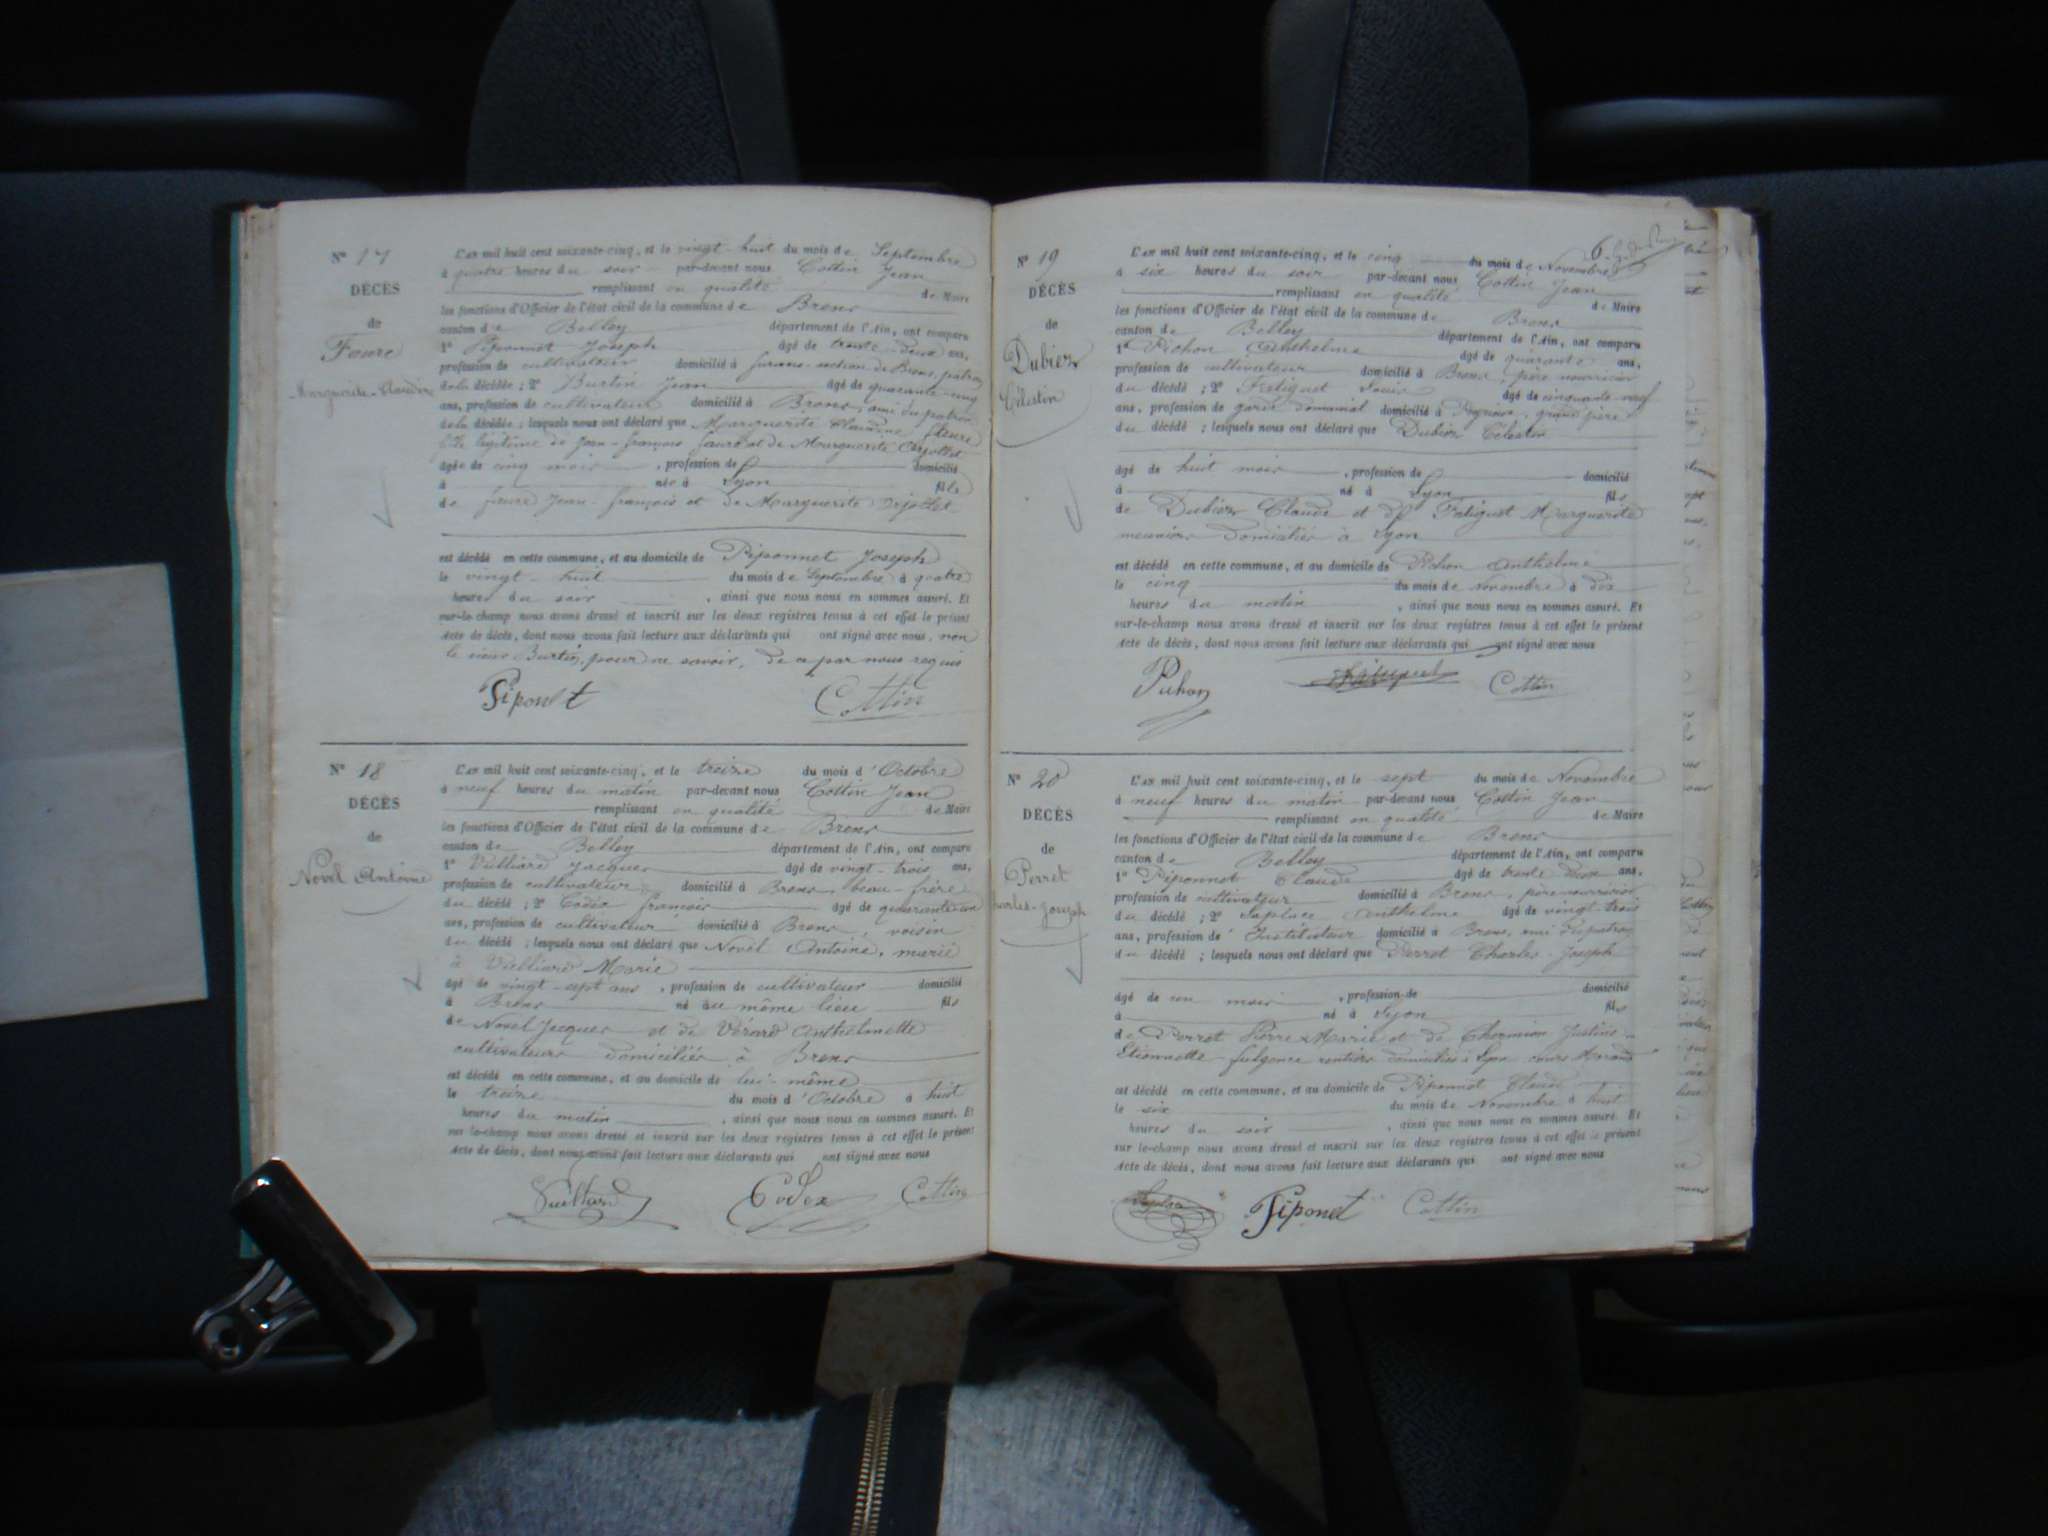 N° 17
DÉCÈS
de
Faure
Marguerite-Claudine
L'an mil huit cent soixante-cinq, et le vingt-huit du mois de Septembre
à quatre heures du soir par-devant nous Cottin Jean
remplissant en qualité de Maire
les fonctions d'Officier de l'état civil de la commune de Brens
canton de Belley département de l'Ain, ont comparu
1° Piponnet Joseph âgé de trente-deux ans,
profession de cultivateur domicilié à section de Brens, patron
de la décédée ; 2° Burtin Jean âgé de quarante-cinq
ans, profession de cultivateur domicilié à Brens, ami du patron
de la décédée ; lesquels nous ont déclaré que Marguerite Claudine Faure
fille légitime de Jean-françois faure et de Marguerite
âgée de cinq mois , profession de domicilié
à née à Lyon fille
de faure Jean-françois et de Marguerite
est décédé en cette commune, et au domicile de Piponnet Joseph
le vingt-huit du mois de Septembre à quatre
heures du soir , ainsi que nous nous en sommes assuré. Et
sur-le-champ nous avons dressé et inscrit sur les deux registres tenus à cet effet le présent
Acte de décès, dont nous avons fait lecture aux déclarants qui ont signé avec nous, non
le sieur Burtin, pour ne savoir, de ce par nous requis
Piponet Cottin
N° 18
DÉCÈS
de
Novel Antoine
L'an mil huit cent soixante-cinq, et le treize du mois d'Octobre
à neuf heures du matin par-devant nous Cottin Jean
remplissant en qualité de Maire
les fonctions d'Officier de l'état civil de la commune de Brens
canton de Belley département de l'Ain, ont comparu
1° Vulliard Jacques âgé de vingt-trois ans,
profession de cultivateur domicilié à Brens, beau-frère
du décédé ; 2° Codex françois âgé de quarante un
ans, profession de cultivateur domicilié à Brens, voisin
du décédé ; lesquels nous ont déclaré que Novel Antoine, marié
à Vulliard Marie
âgé de vingt-sept ans , profession de cultivateur domicilié
à Brens né au même lieu fils
de Novel Jacques et de Vérard Anthelmette
cultivateurs domiciliés à Brens
est décédé en cette commune, et au domicile de lui-même
le treize du mois d'Octobre à huit
heures du matin , ainsi que nous nous en sommes assuré. Et
sur le-champ nous avons dressé et inscrit sur les deux registres tenus à cet effet le présent
Acte de décès, dont nous avons fait lecture aux déclarants qui ont signé avec nous
Vuilliard Codex Cottin
6
N° 19
DÉCÈS
de
Dubien
Célestin
L'an mil huit cent soixante-cinq, et le cinq du mois de Novembre
à six heures du soir par-devant nous Cottin Jean
remplissant en qualité de Maire
les fonctions d'Officier de l'état civil de la commune de Brens
canton de Belley département de l'Ain, ont comparu
1° Pichon Anthelme âgé de quarante ans,
profession de cultivateur domicilié à Brens, père nourricier
du décédé ; 2° Fatiguet Louis âgé de cinquante neuf
ans, profession de garde domanial domicilié à grand père
du décédé ; lesquels nous ont déclaré que Dubien Célestin
âgé de huit mois , profession de domicilié
à né à Lyon fils
de Dubien Claude et de Fatiguet Marguerite
meuniers domiciliés à Lyon
est décédé en cette commune, et au domicile de Pichon Anthelme
le cinq du mois de Novembre à dix
heures du matin , ainsi que nous nous en sommes assuré. Et
sur-le-champ nous avons dressé et inscrit sur les deux registres tenus à cet effet le présent
Acte de décès, dont nous avons fait lecture aux déclarants qui ont signé avec nous
Pichon Cottin
N° 20
DÉCÈS
de
Perret
Charles-Joseph
L'an mil huit cent soixante-cinq, et le sept du mois de Novembre
à neuf heures du matin par-devant nous Cottin Jean
remplissant en qualité de Maire
les fonctions d'Officier de l'état civil de la commune de Brens
canton de Belley département de l'Ain, ont comparu
1° Piponnet Claude âgé de trente deux ans,
profession de cultivateur domicilié à Brens, père nourricier
du décédé ; 2° Laplace Anthelme âgé de vingt-trois
ans, profession d'Instituteur domicilié à Brens, ami du patron
du décédé ; lesquels nous ont déclaré que Perret Charles-Joseph
âgé de un mois , profession de domicilié
à né à Lyon fils
de Perret Pierre Marie et de Justine
Etiennette-fulgence rentiers domiciliés à Lyon cours Morand
est décédé en cette commune, et au domicile de Piponnet Claude
le six du mois de Novembre à huit
heures du soir , ainsi que nous nous en sommes assuré. Et
sur le-champ nous avons dressé et inscrit sur les deux registres tenus à cet effet le présent
Acte de décès, dont nous avons fait lecture aux déclarants qui ont signé avec nous
Laplace Piponet Cottin